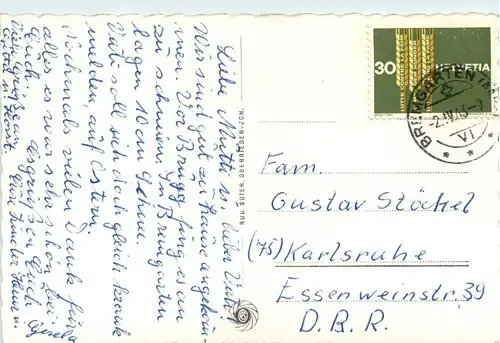 Liebe Mutti u. lieber Vati!
Wir sind gut zu Hause angekom-
men. Vor Brugg fing es an
zu schneien. In Bremgarten
lagen 10 cm Schnee.
Vati soll sich doch gleich krank
melden, auf Ostern.
Nochmals vielen Dank für
alles es war sehr schön bei
Euch. Es grüßen Euch
Eure Kinder
Viele Grüße
Gisela
RUD. SUTER, OBERRIEDEN-ZCH.
30 HELVETIA
LUTTE CONTRE LA FAIM
BREMGARTEN
-2.IV.
VI
Fam.
Gustav Stöckel
(75) Karlsruhe
Essenweinstr. 39
D.B.R.